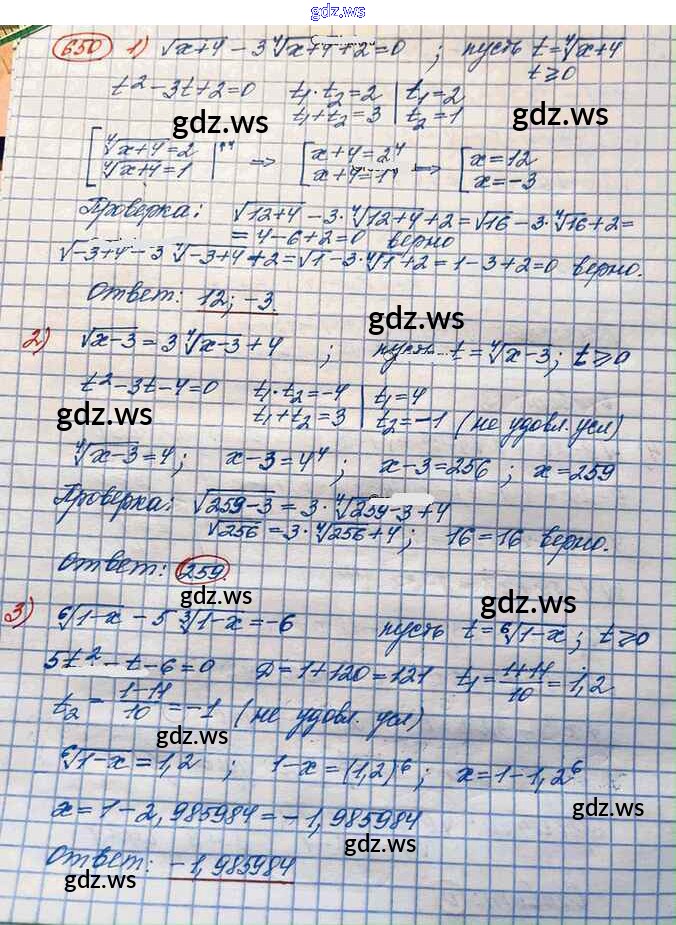 gdz.ws
650 1) √x+4 - 3⁴√x+4+2=0 ; пусть t=⁴√x+4
t≥0
t²-3t+2=0 t₁·t₂=2 | t₁=2
t₁+t₂=3 | t₂=1
gdz.ws gdz.ws
[⁴√x+4=2 ⇒ [x+4=2⁴ ⇒ [x=12
⁴√x+4=1 x+4=1⁴ x=-3
Проверка: √12+4 - 3·⁴√12+4+2=√16-3·⁴√16+2=
=4-6+2=0 верно
√-3+4-3 ⁴√-3+4+2=√1-3·⁴√1+2=1-3+2=0 верно.
gdz.ws gdz.ws
Ответ: 12; -3.
gdz.ws
2) √x-3=3⁴√x-3+4 ; пусть t=⁴√x-3; t≥0
t²-3t-4=0 t₁·t₂=-4 | t₁=4
t₁+t₂=3 | t₂=-1 (не удовл. усл)
gdz.ws gdz.ws
⁴√x-3=4; x-3=4⁴ ; x-3=256 ; x=259
Проверка: √259-3=3·⁴√259-3+4
√256=3·⁴√256+4; 16=16 верно.
gdz.ws gdz.ws
Ответ: 259.
gdz.ws gdz.ws
3) ⁶√1-x - 5 ³√1-x=-6 пусть t=⁶√1-x; t≥0
5t²-t-6=0 D=1+120=121 t₁=1+11/10=1,2
t₂=1-11/10=-1 (не удовл. усл)
gdz.ws gdz.ws
⁶√1-x=1,2 ; 1-x=(1,2)⁶; x=1-1,2⁶
gdz.ws
x=1-2,985984=-1,985984
gdz.ws
Ответ: -1,985984
gdz.ws gdz.ws